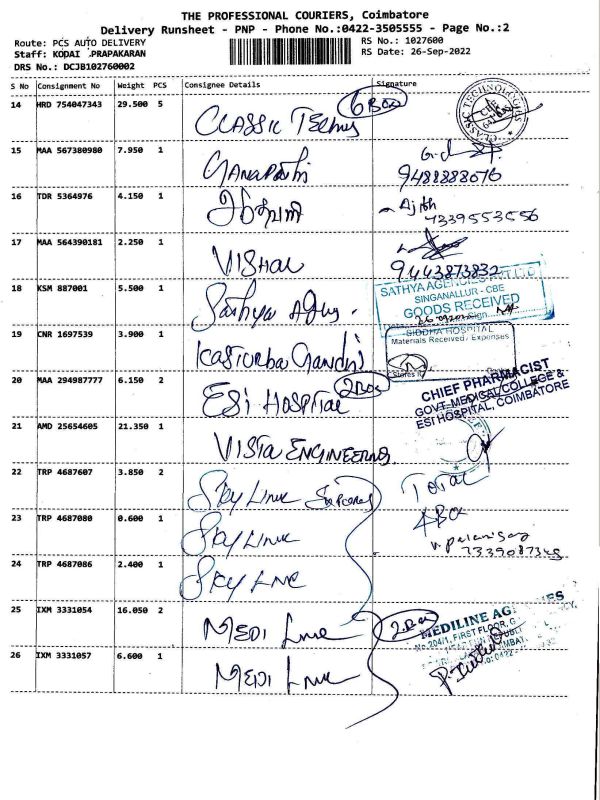 THE PROFESSIONAL COURIERS, Coimbatore
Delivery Runsheet - PNP - Phone No.:0422-3505555 - Page No.:2
Route: PCS AUTO DELIVERY
RS No.: 1027600
Staff: KODAI .PRAPAKARAN
RS Date: 26-Sep-2022
DRS No.: DCJB102760002
S No Consignment No Weight PCS Consignee Details Signature
14 HRD 754047343 29.500 5 CLASSIC 6 BOX
CLASSIC TECHNOLOGIES
15 MAA 567380980 7.950 1
16 TDR 5364976 4.150 1
7339553556
17 MAA 564390181 2.250 1 VISHAL
9443873832
18 KSM 887001 5.500 1 Sathya
SATHYA AGENCIES PVT LTD
SINGANALLUR - CBE
GOODS RECEIVED
Sign
19 CNR 1697539 3.900 1 Kasturba Gandhi
SIDDHA HOSPITAL
Materials Received / Expenses
Stores
20 MAA 294987777 6.150 2 ESI HOSPITAL 2 BOX
CHIEF PHARMACIST
GOVT. MEDICAL COLLEGE &
ESI HOSPITAL, COIMBATORE
21 AMD 25654605 21.350 1 VISTA ENGINEERING
22 TRP 4687607 3.850 2 SKY LINK
TOTAL
23 TRP 4687080 0.600 1 SKY LINK
4 BOX
24 TRP 4687086 2.400 1 SKY LINK
25 IXM 3331054 16.050 2 MEDI LINE 2 BOX
MEDILINE AGENCIES
No.204/1, FIRST FLOOR,
26 IXM 3331057 6.600 1 MEDI LINE